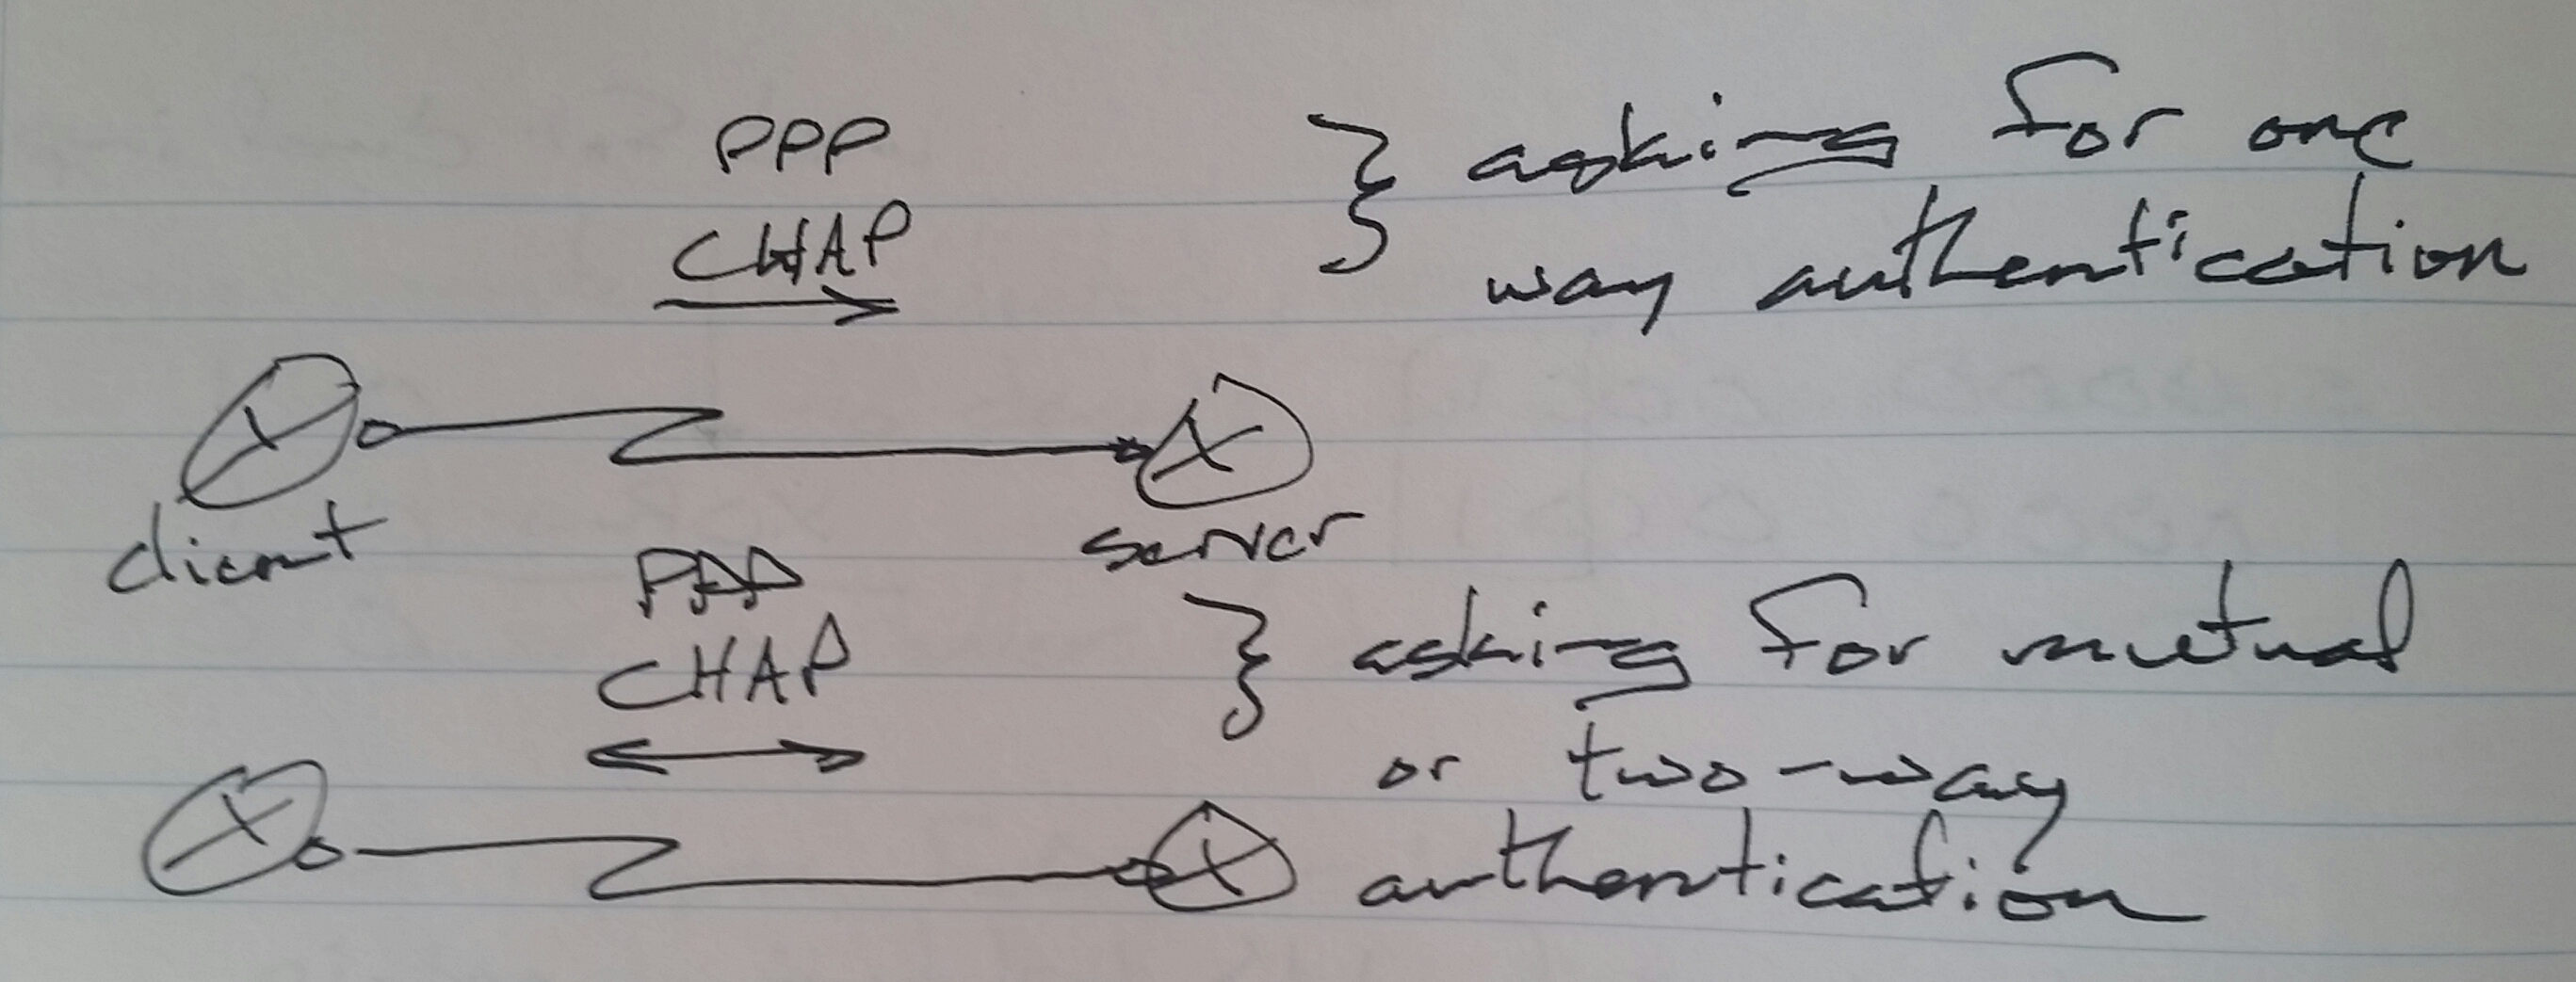 PPP
CHAP
} asking for one
way authentication
client
server
PAP
CHAP
} asking for mutual
or two-way
authentication